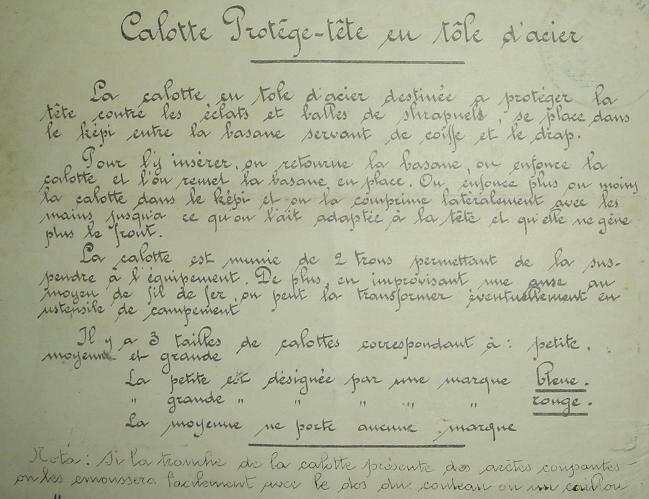 Calotte Protége-tête en tôle d'acier
La calotte en tole d'acier destinée a protéger la
tête contre les éclats et balles de shrapnels, se place dans
le képi entre la basane servant de coiffe et le drap.
Pour l'y insérer, on retourne la basane, on enfonce la
calotte et l'on remet la basane en place. On enfonce plus ou moins
la calotte dans le képi et on la comprime latéralement avec les
mains jusqu'a ce qu'on l'ait adaptée à la tête et qu'elle ne gêne
plus le front.
La calotte est munie de 2 trous permettant de la sus-
pendre à l'équipement. De plus, en improvisant une anse au
moyen de fil de fer, on peut la transformer éventuellement en
ustensile de campement
Il y a 3 tailles de calottes correspondant à : petite,
moyenne et grande
La petite est désignée par une marque bleue.
" grande " " " " " rouge.
La moyenne ne porte aucune marque
Nota : Si la tranche de la calotte présente des arêtes coupantes
on les émoussera facilement avec le dos du couteau ou un caillou